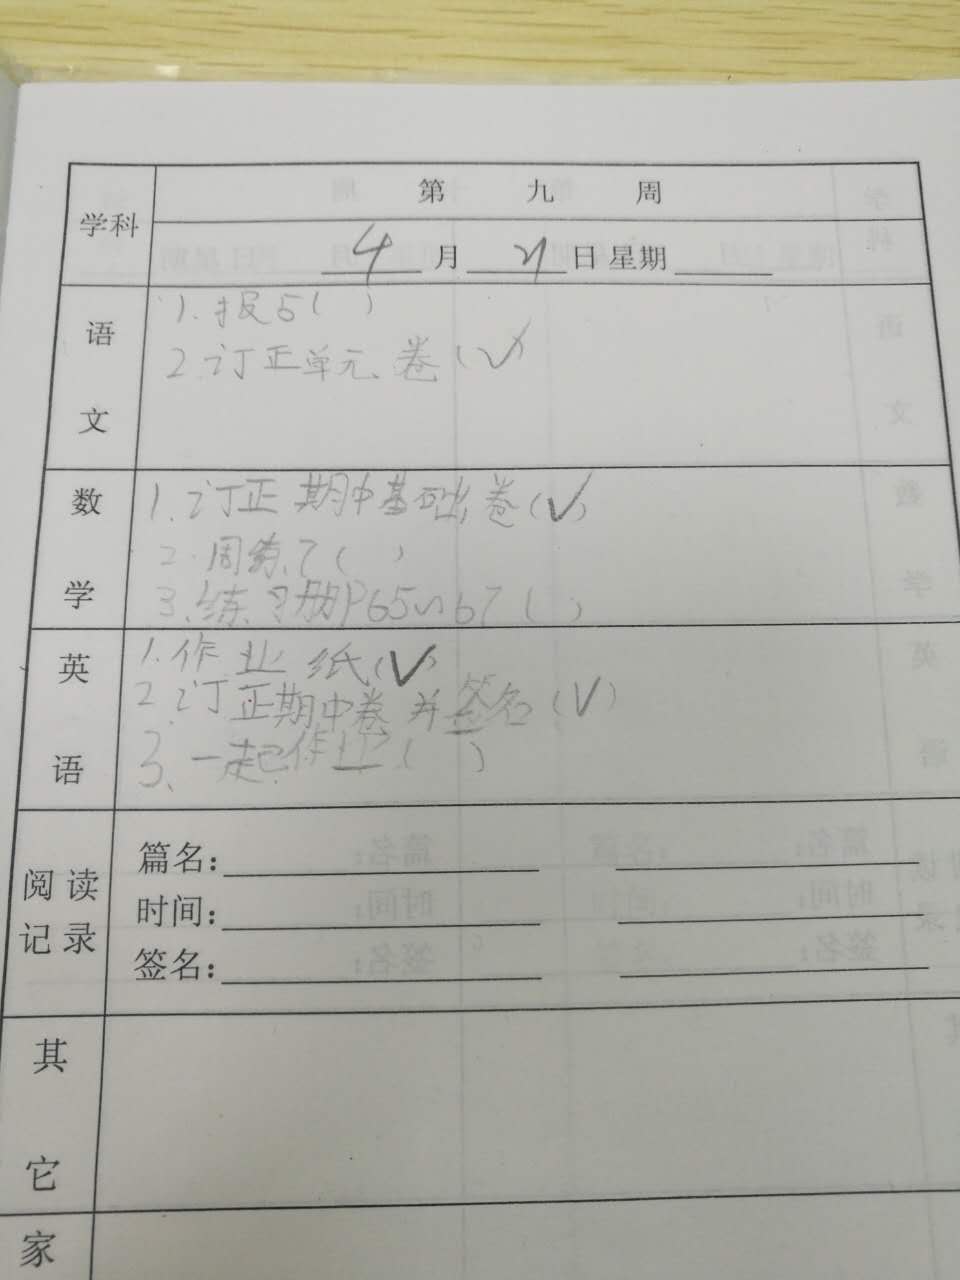 学科
第 九 周
4月21日 星期
语文
1.报5( )
2.订正单元卷(√)
数学
1.订正期中基础卷(√)
2.周练7( )
3.练习册P65~67( )
英语
1.作业纸(√)
2.订正期中卷并签名(√)
3.一起作业( )
阅读记录
篇名:
时间:
签名:
其它
家